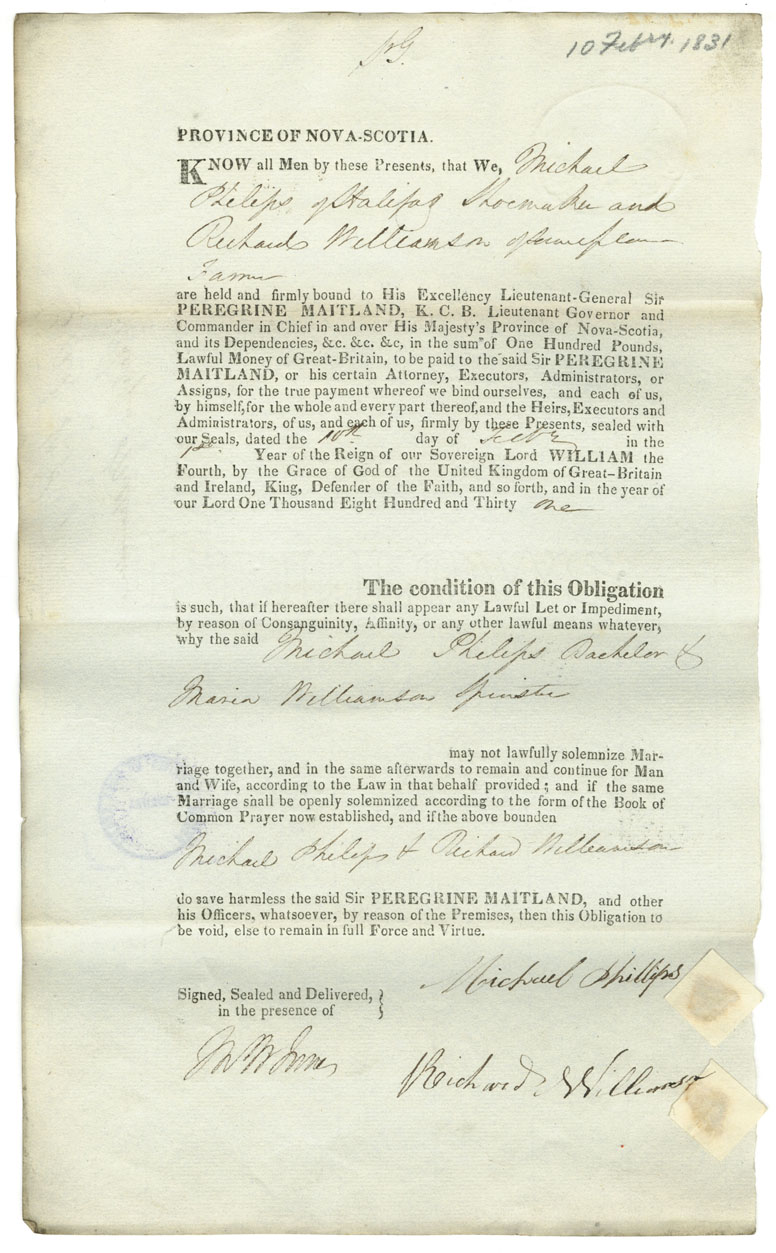 10 Febry. 1831
PROVINCE OF NOVA-SCOTIA.
KNOW all Men by these Presents, that We, Michael
Philips of Halifax Shoemaker and
Richard Williamson of same place
Farmer
are held and firmly bound to His Excellency Lieutenant-General Sir
PEREGRINE MAITLAND, K. C. B. Lieutenant Governor and
Commander in Chief in and over His Majesty's Province of Nova-Scotia,
and its Dependencies, &c. &c. &c, in the sum of One Hundred Pounds,
Lawful Money of Great-Britain, to be paid to the said Sir PEREGRINE
MAITLAND, or his certain Attorney, Executors, Administrators, or
Assigns, for the true payment whereof we bind ourselves, and each of us,
by himself, for the whole and every part thereof, and the Heirs, Executors and
Administrators, of us, and each of us, firmly by these Presents, sealed with
our Seals, dated the 10th day of in the
1st Year of the Reign of our Sovereign Lord WILLIAM the
Fourth, by the Grace of God of the United Kingdom of Great-Britain
and Ireland, King, Defender of the Faith, and so forth, and in the year of
our Lord One Thousand Eight Hundred and Thirty one
The condition of this Obligation
is such, that if hereafter there shall appear any Lawful Let or Impediment,
by reason of Consanguinity, Affinity, or any other lawful means whatever,
why the said Michael Philips Bachelor &
Maria Williamson Spinster
may not lawfully solemnize Mar-
riage together, and in the same afterwards to remain and continue for Man
and Wife, according to the Law in that behalf provided; and if the same
Marriage shall be openly solemnized according to the form of the Book of
Common Prayer now established, and if the above bounden
Michael Philips & Richard Williamson
do save harmless the said Sir PEREGRINE MAITLAND, and other
his Officers, whatsoever, by reason of the Premises, then this Obligation to
be void, else to remain in full Force and Virtue.
Michael Phillips
Signed, Sealed and Delivered,
in the presence of
Richard Williamson